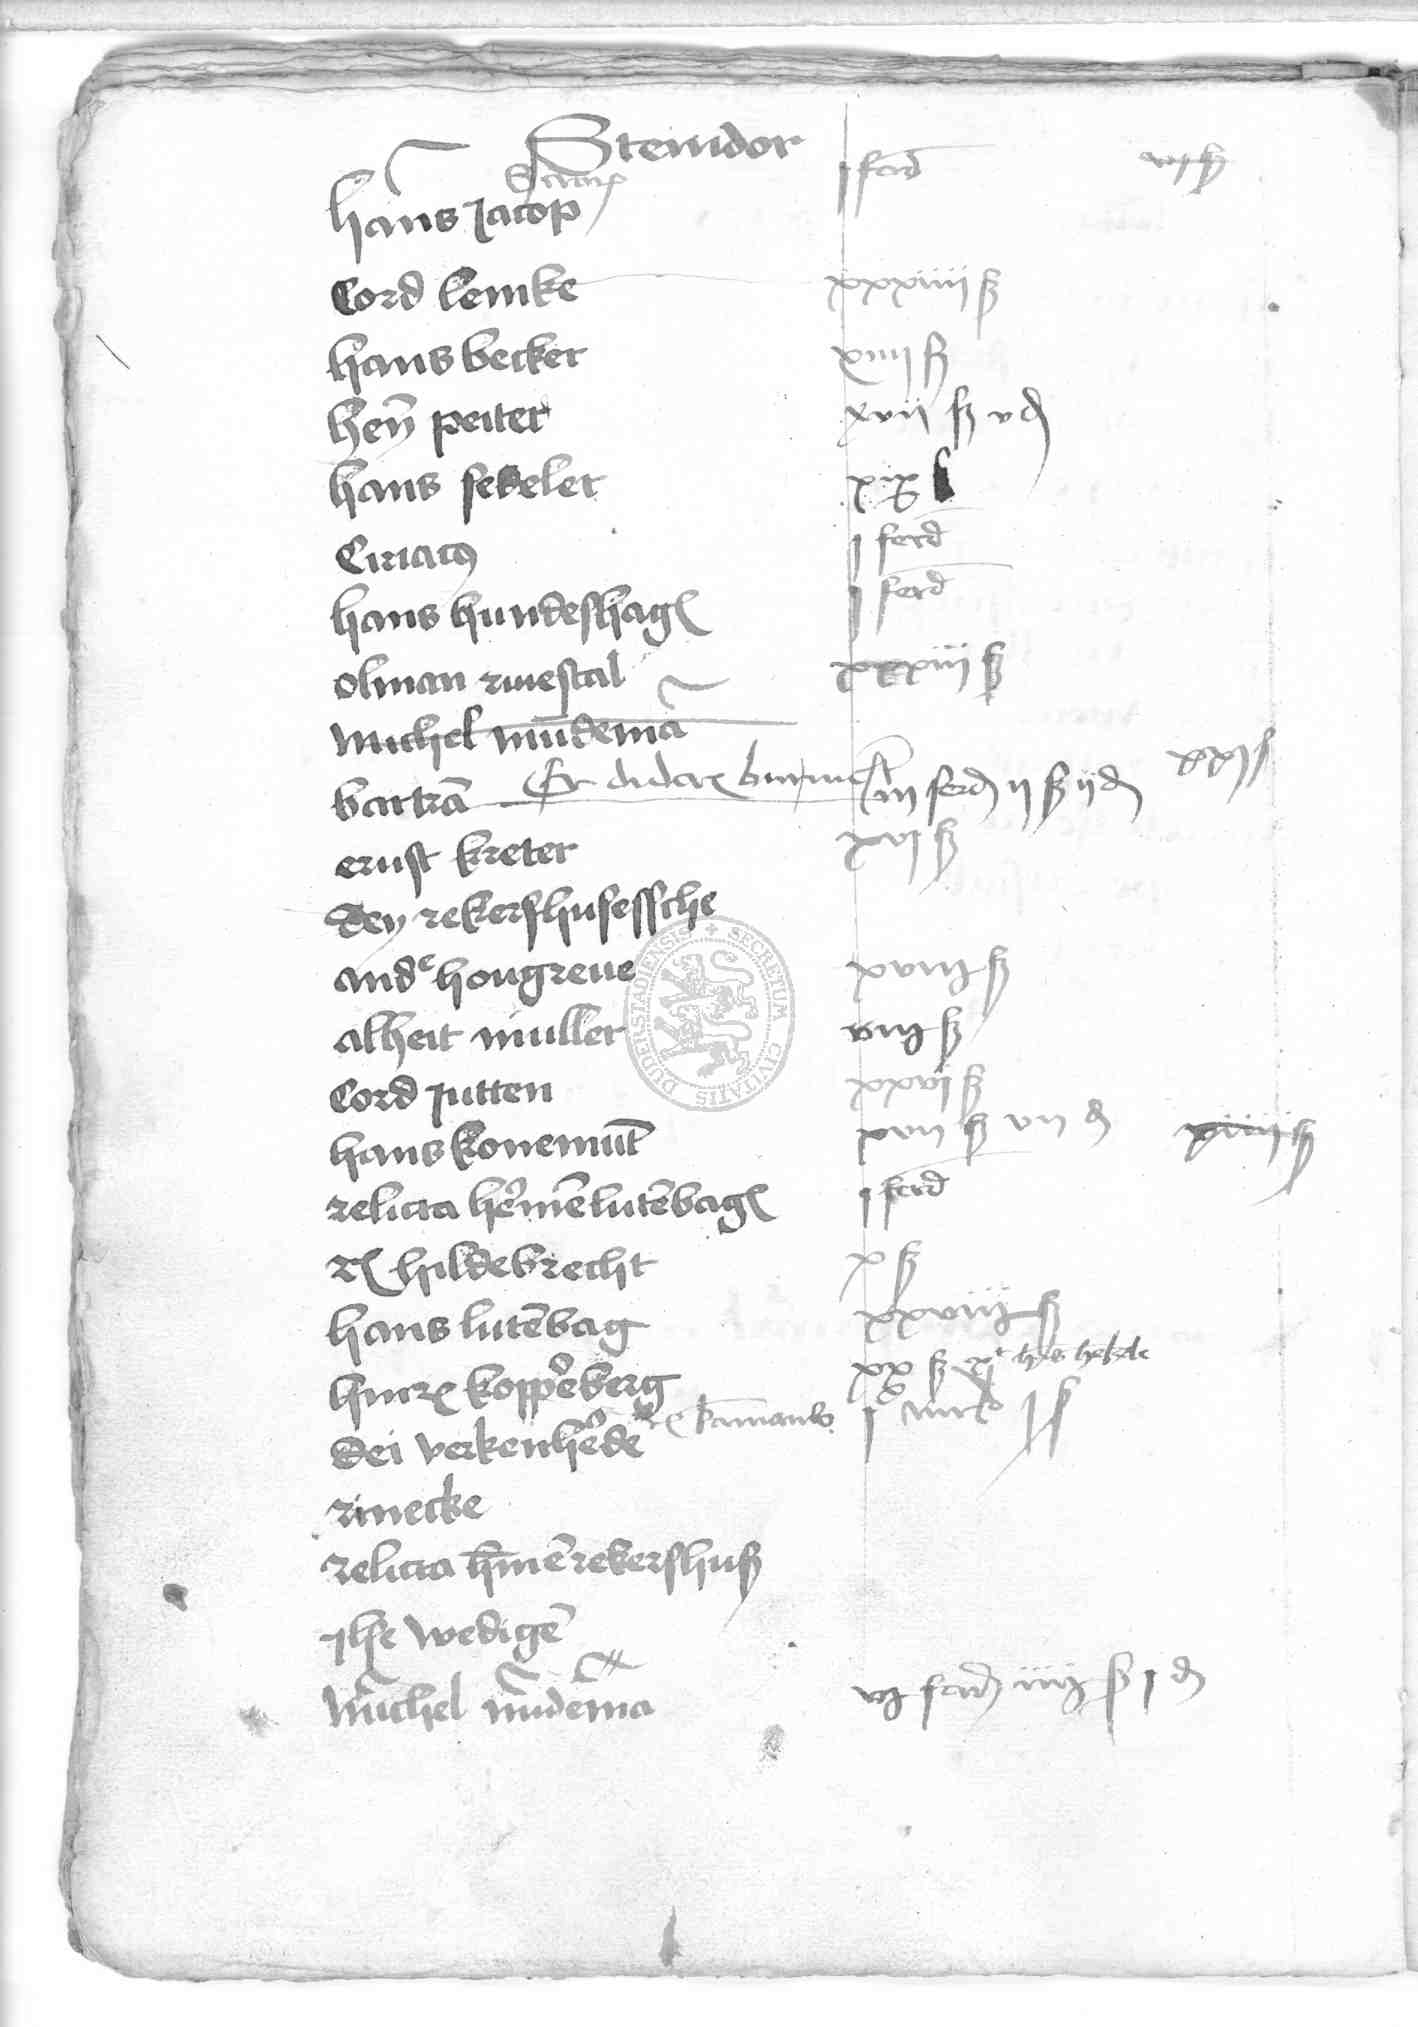 Steindor
hans Jacop j ferd
Cord lemke xxxiiij ß
hans becker xiiij ß
heñ peiter xvij ß v d
hans sedeler xix
Ciriacus j ferd
hans hundeshagen j ferd
olman ruestal xxxiij ß
michel mudemā
bartrā iij ferd ij ß ij d
ernst kreter xvj ß
dey rekershusessche
ande hougreue xviij ß
alheit muller viij ß
Cord Jutten xxvj ß
hans konemūt xvij ß vij d xiiij ß
relicta hermē lutēbagen j ferd
hildebrecht x ß
hans lutēbag xxviij ß
hinrc koppēberg xx ß
dei verkenherde j mrc
rinecke
relicta hmē rekershuß
Ilse wedigē
michel mudemā vj ferd iiij ß j d
SECRETUM CIVITATIS DUDERSTADIENSIS